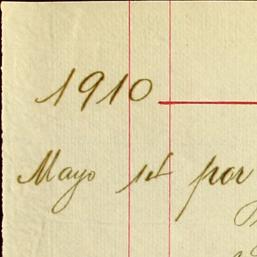 1910
Mayo 1st por